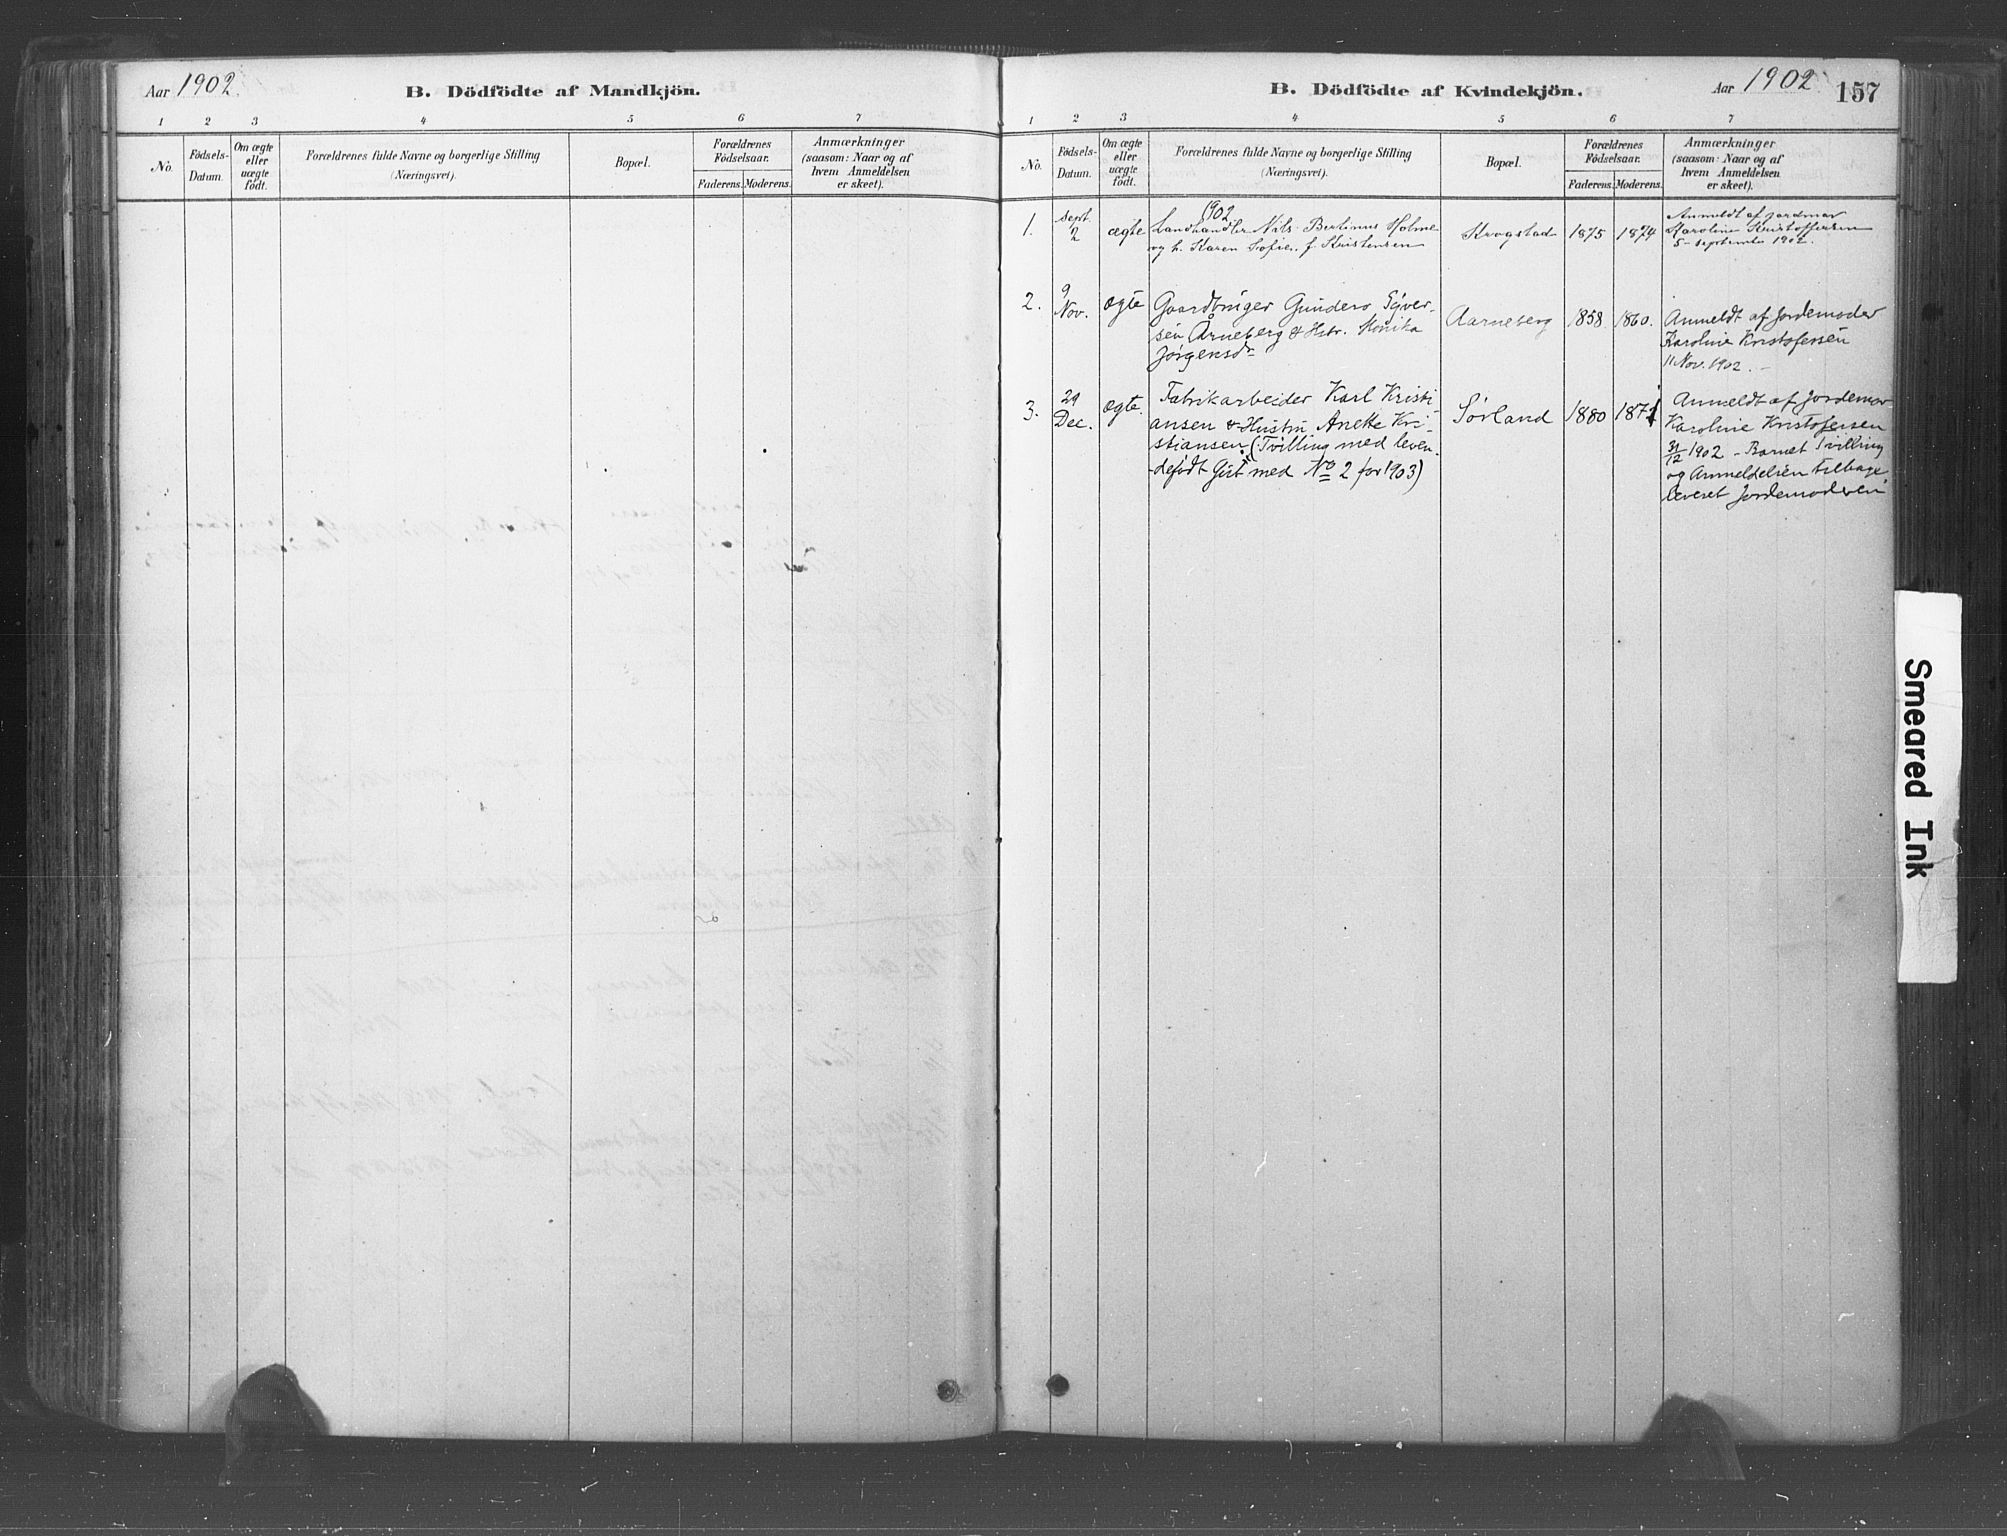 Aar 1902
B. Dödfödte af Mandkjön.
1 2 3 4 5 6 7
No.
Födsels-
Datum.
Om ægte
eller
uægte
födt.
Forældrenes fulde Navne og borgerlige Stilling
(Næringsvei).
Bopæl.
Forældrenes
Födselsaar.
Faderens. Moderens.
Anmærkninger
(saasom: Naar og af
hvem Anmeldelsen
er skeet).
B. Dödfödte af Kvindekjön.
Aar 1902
157
1 2 3 4 5 6 7
No.
Födsels-
Datum.
Om ægte
eller
uægte
födt.
Forældrenes fulde Navne og borgerlige Stilling
(Næringsvei).
Bopæl.
Forældrenes
Födselsaar.
Faderens. Moderens.
Anmærkninger
(saasom: Naar og af
hvem Anmeldelsen
er skeet).
1902
1.
Sept.
2
ægte
Landhandler Nils Bertinus Holme
og h. Karen Sofie, f. Kristensen
Krogstad
1875
1874
Anmeldt af jordmor
Karoline Kristoffersen
5 september 1902.
2.
9
Nov.
ægte
Gaardbruger Gunders Sÿver-
sen Årneberg & Hstr. Monika
Jørgensdr
Aarneberg
1858
1860.
Anmeldt af Jordemoder
Karoline Kristofersen
11 Nov. 1902. -
3.
29
Dec.
ægte.
Fabrikarbeider Karl Kristi-
ansen & Hustru Anette Kri-
stiansen. (Tvilling med leven-
defødt Gut med No 2 for 1903)
Sørland
1880
1871
Anmeldt af Jordemor
Karoline Kristofersen
31/12 1902 - Barnet Tvilling
og Anmeldelsen tilbage
leveret Jordemoderen
Smeared Ink